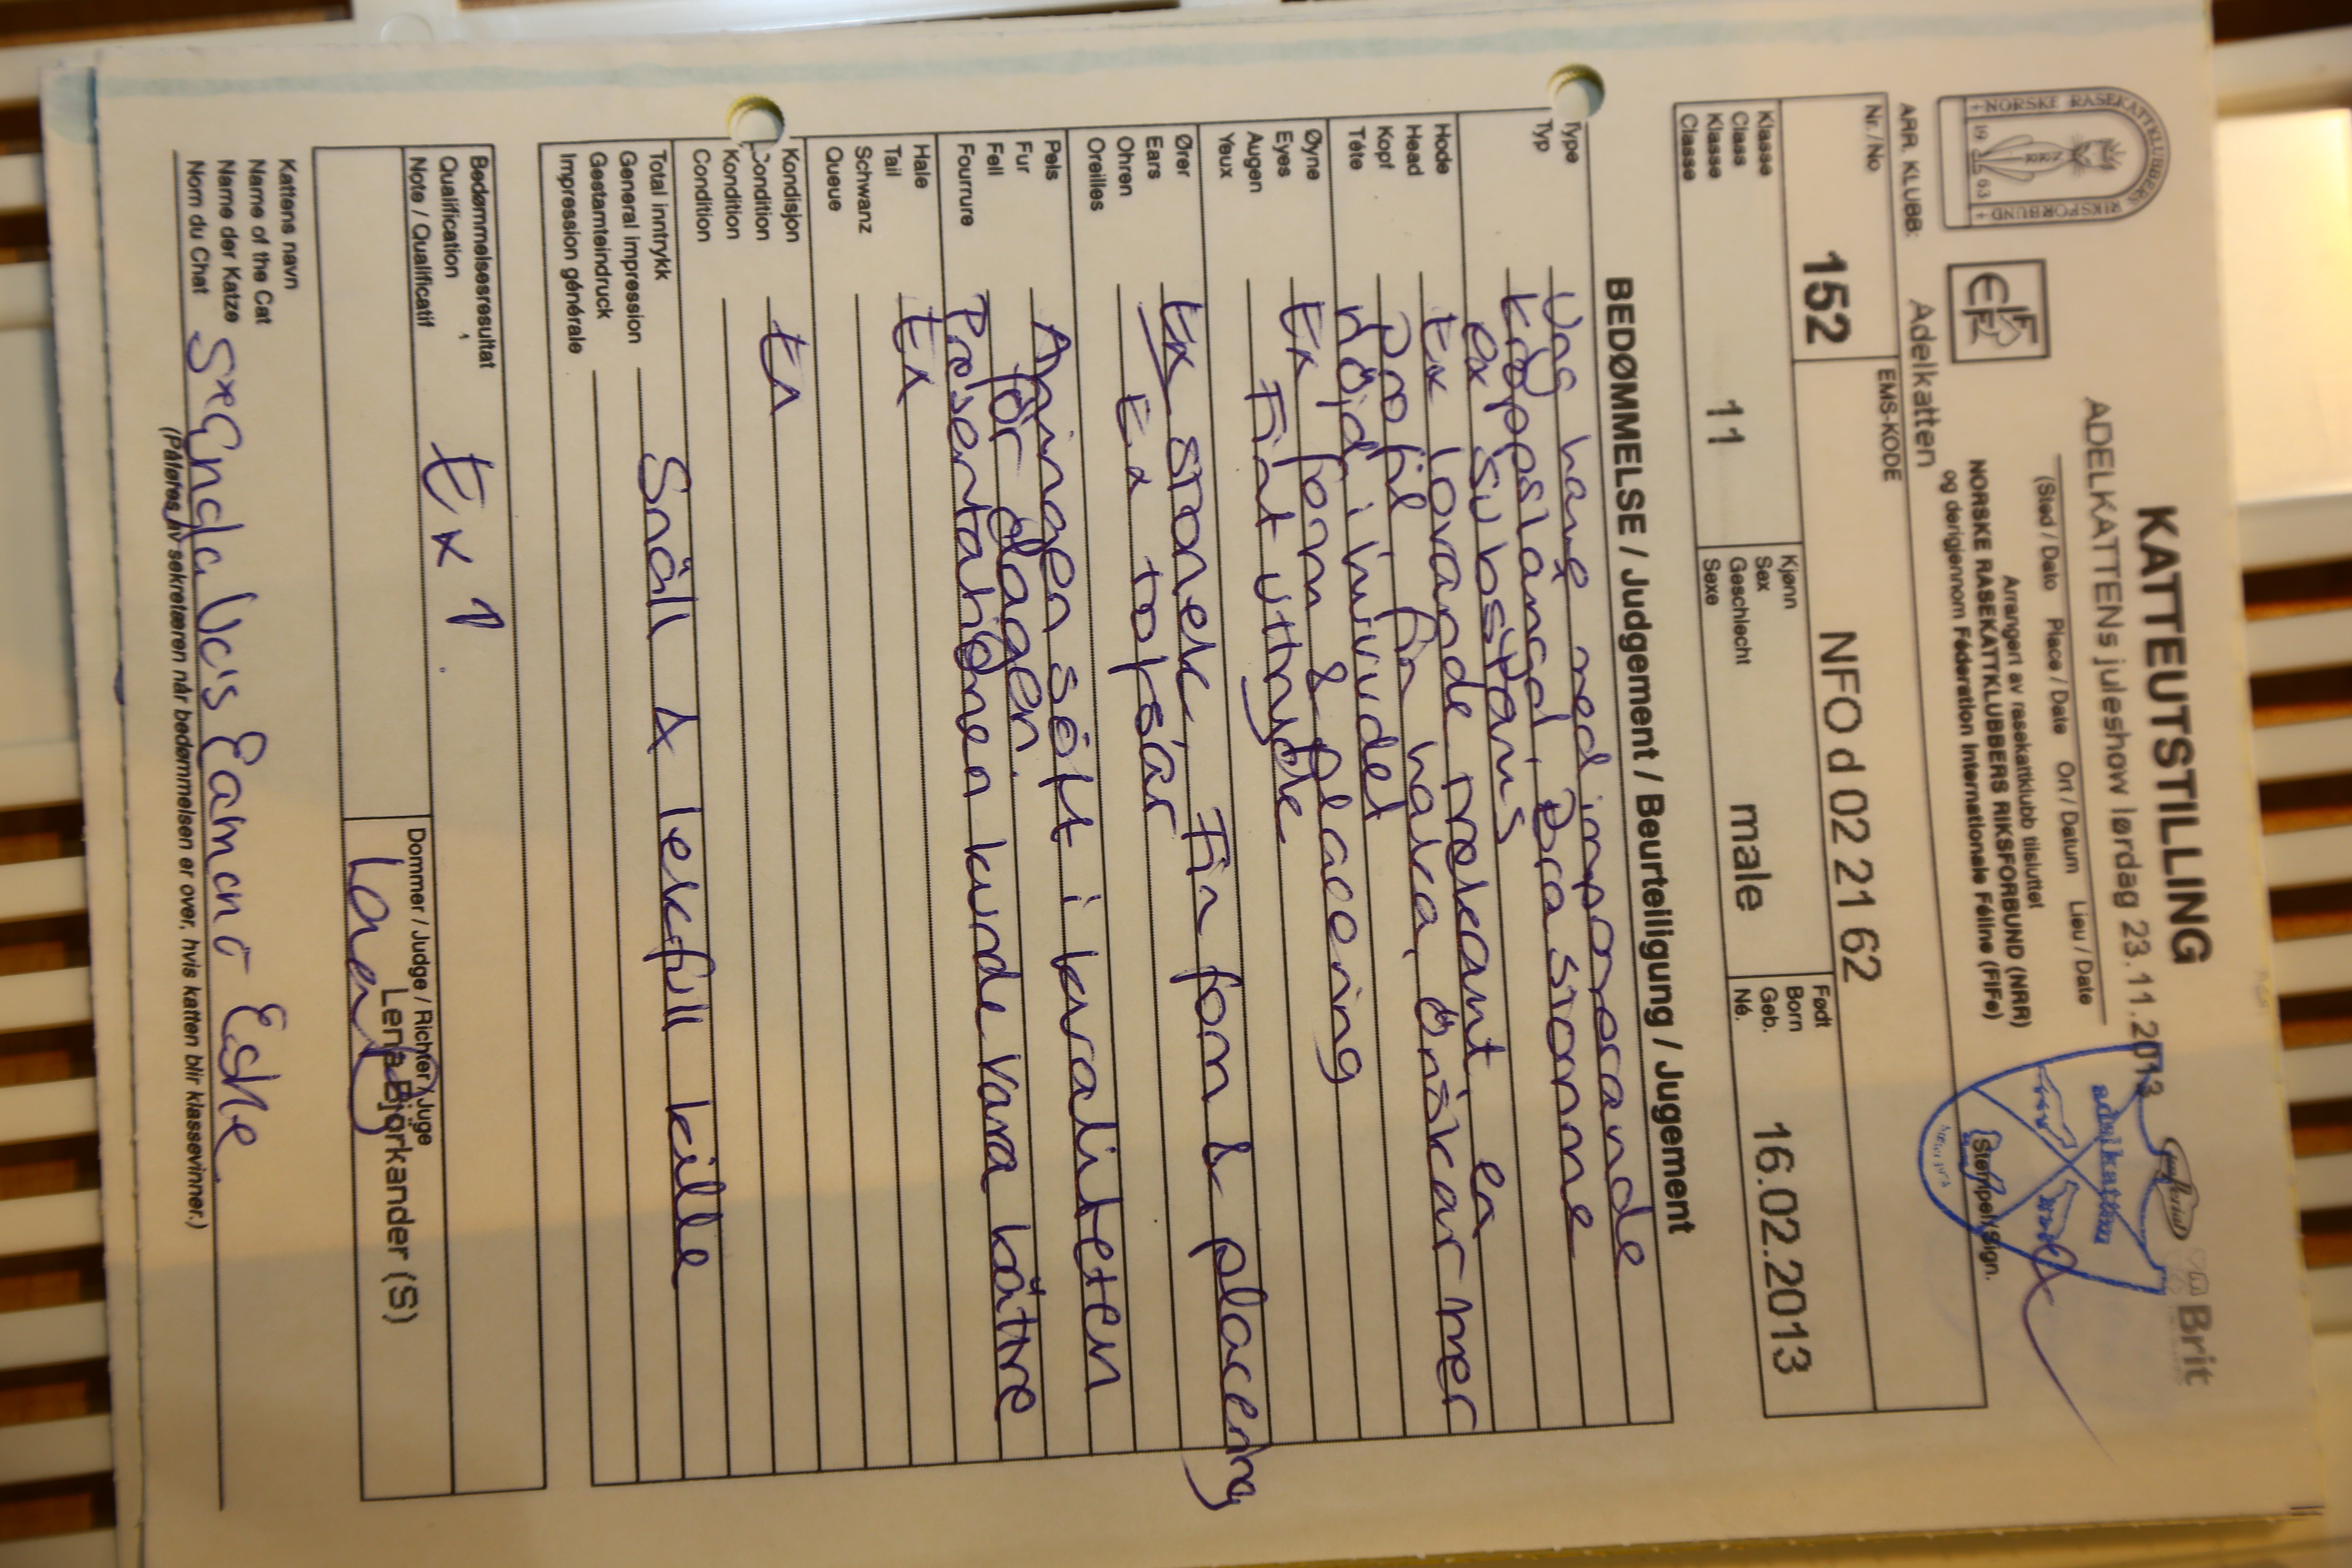 KATTEUTSTILLING
ADELKATTENs juleshow lørdag 23.11.2013
Brit
(Sted / Dato Place / Date Ort / Datum Lieu / Date
Arrangert av rasekattklubb tilsluttet
NORSKE RASEKATTKLUBBERS RIKSFORBUND (NRR)
og derigjennom Féderation Internationale Féline (FIFe)
(Stempel/Sign.
adelkatten
NORSKE RASEKATTKLUBBERS RIKSFORBUND
19 63
NRR
FIFe
ARR. KLUBB: Adelkatten
Nr. / No 152
EMS-KODE NFO d 02 21 62
Klasse
Class
Klasse
Classe
11
Kjønn
Sex
Geschlecht
Sexe
male
Født
Born
Geb.
Né.
16.02.2013
BEDØMMELSE / Judgement / Beurteiligung / Jugement
Type
Typ
Ung hane med imponerande
kroppslängd, bra stomme
ex substans
Hode
Head
Kopf
Tête
Ex lovande markant, en
profil, fin haka, önskar mer
höjd i huvudet
Øyne
Eyes
Augen
Yeux
Ex form & placering
Fint uttryck
Ører
Ears
Ohren
Oreilles
Ex storlek, Fin form & placering
Ex tofsar
Pels
Fur
Fell
Fourrure
Aningen sött i kvaliteten
för dagen.
Presentationen kunde vara bättre
Hale
Tail
Schwanz
Queue
Ex
Kondisjon
Condition
Kondition
Condition
Ex
Total inntrykk
General impression
Gestamteindruck
Impression générale
Snäll & lekfull kille
Bedømmelsesresultat
Qualification
Note / Qualificatif
Ex 1
Dommer / Judge / Richter / Juge
Lena Björkander (S)
Kattens navn
Name of the Cat
Name der Katze
Nom du Chat
S*Enda Vc's Eamcno Eske
(Påføres av sekretæren når bedømmelsen er over, hvis katten blir klassevinner.)